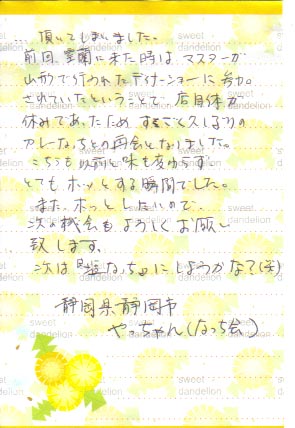 … 頂いてしまいました。
前回、室蘭に来た時はマスターが
山形で行われたディナーショーに参加
されていたということで、店自体が
休みであったため すごく久しぶりの
カレーなっちとの再会となりました。
こちらも以前と味も変わらず
とてもホッとする瞬間でした。
また、ホッとしたいので、
次の機会もよろしくお願い
致します。
次は塩なっちょにしようかな?(笑)
静岡県静岡市
やっちゃん(なっち会)
sweet
dandelion